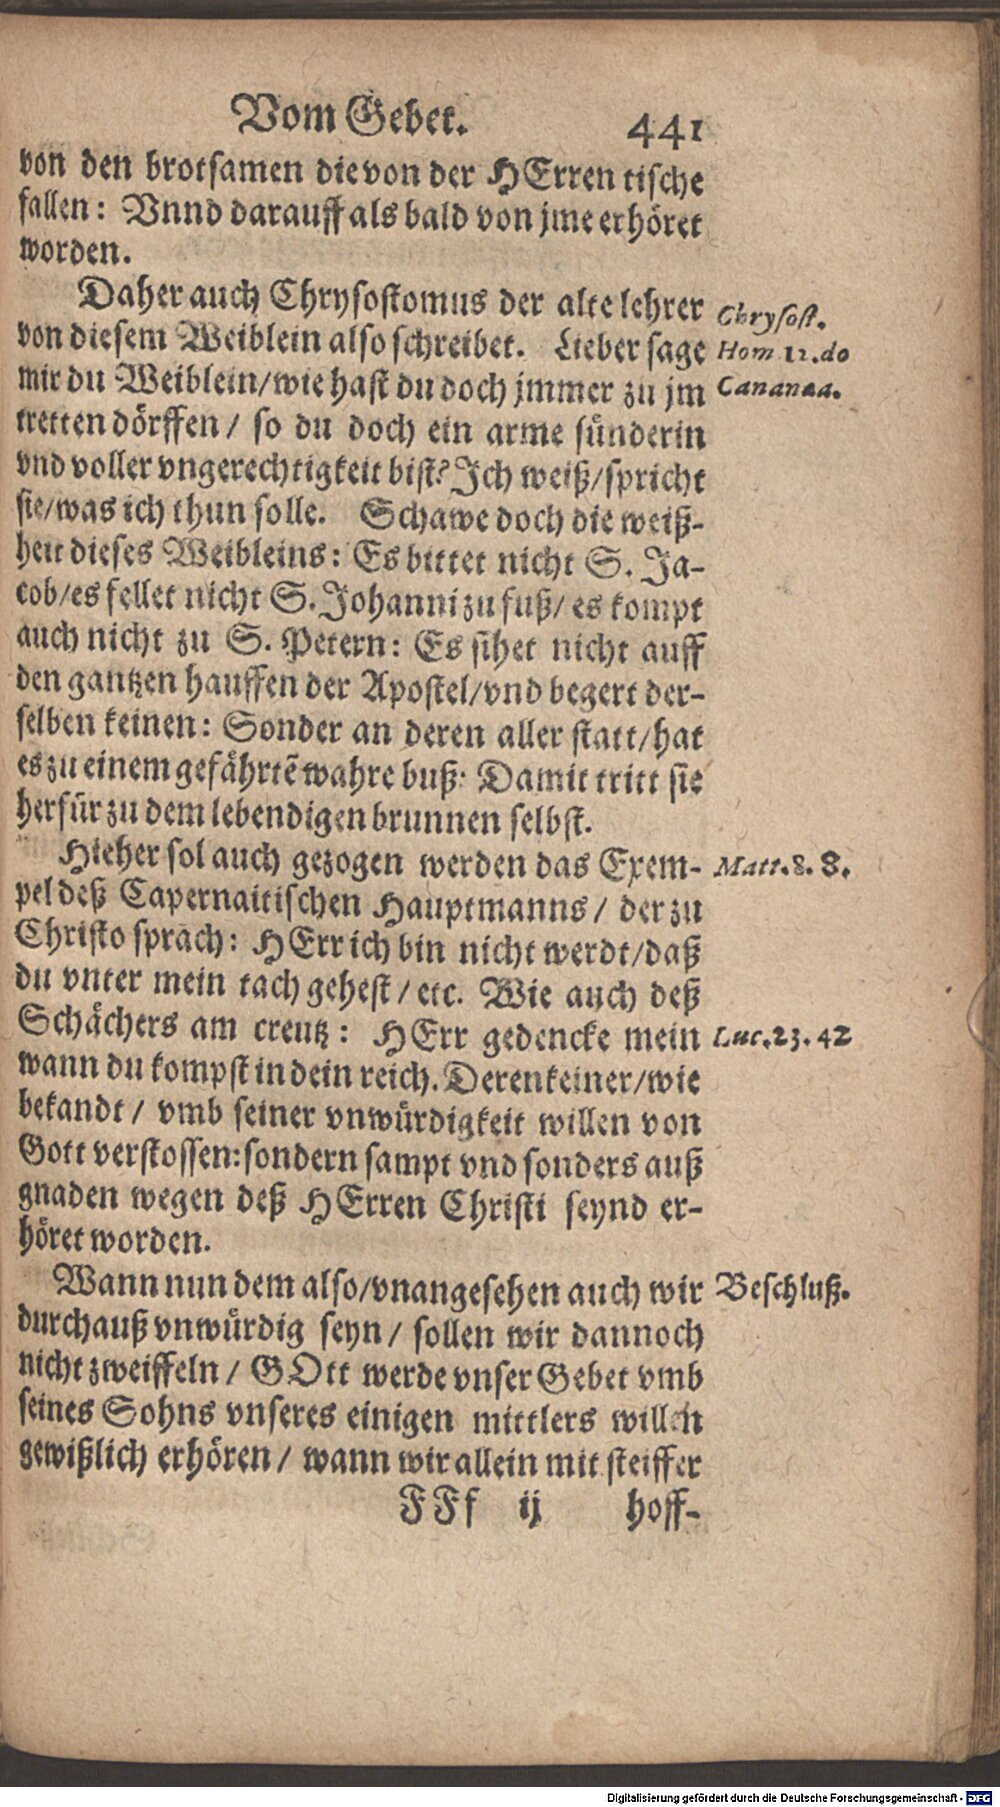 Vom Gebet. 441
von den brotsamen die von der HErren tische
fallen: Vnnd darauff als bald von jme erhöret
worden.
Daher auch Chrysostomus der alte lehrer
Chrysost.
von diesem Weiblein also schreibet. Lieber sage
Hom 12. do
mir du Weiblein/wie hast du doch jmmer zu jm
Cananaa.
tretten dörffen/ so du doch ein arme sünderin
vnd voller vngerechtigkeit bist? Ich weiß/spricht
sie/was ich thun solle. Schawe doch die weiß-
heit dieses Weibleins: Es bittet nicht S. Ja-
cob/es fellet nicht S. Johanni zu fuß/ es kompt
auch nicht zu S. Petern: Es sihet nicht auff
den gantzen hauffen der Apostel/vnd begert der-
selben keinen: Sonder an deren aller statt/hat
es zu einem gefährtẽ wahre buß: Damit tritt sie
herfür zu dem lebendigen brunnen selbst.
Hieher sol auch gezogen werden das Exem-
Matt. 8. 8.
pel deß Capernaitischen Hauptmanns/ der zu
Christo sprach: HErr ich bin nicht werdt/daß
du vnter mein tach gehest/ etc. Wie auch deß
Schächers am creutz: HErr gedencke mein
Luc. 23. 42
wann du kompst in dein reich. Deren keiner/wie
bekandt/ vmb seiner vnwürdigkeit willen von
Gott verstossen: sondern sampt vnd sonders auß
gnaden wegen deß HErren Christi seynd er-
höret worden.
Wann nun dem also/vnangesehen auch wir
Beschluß.
durchauß vnwürdig seyn/ sollen wir dannoch
nicht zweiffeln/ GOtt werde vnser Gebet vmb
seines Sohns vnseres einigen mittlers willen
gewißlich erhören/ wann wir allein mit steiffer
FFf ij hoff-
Digitalisierung gefördert durch die Deutsche Forschungsgemeinschaft - DFG